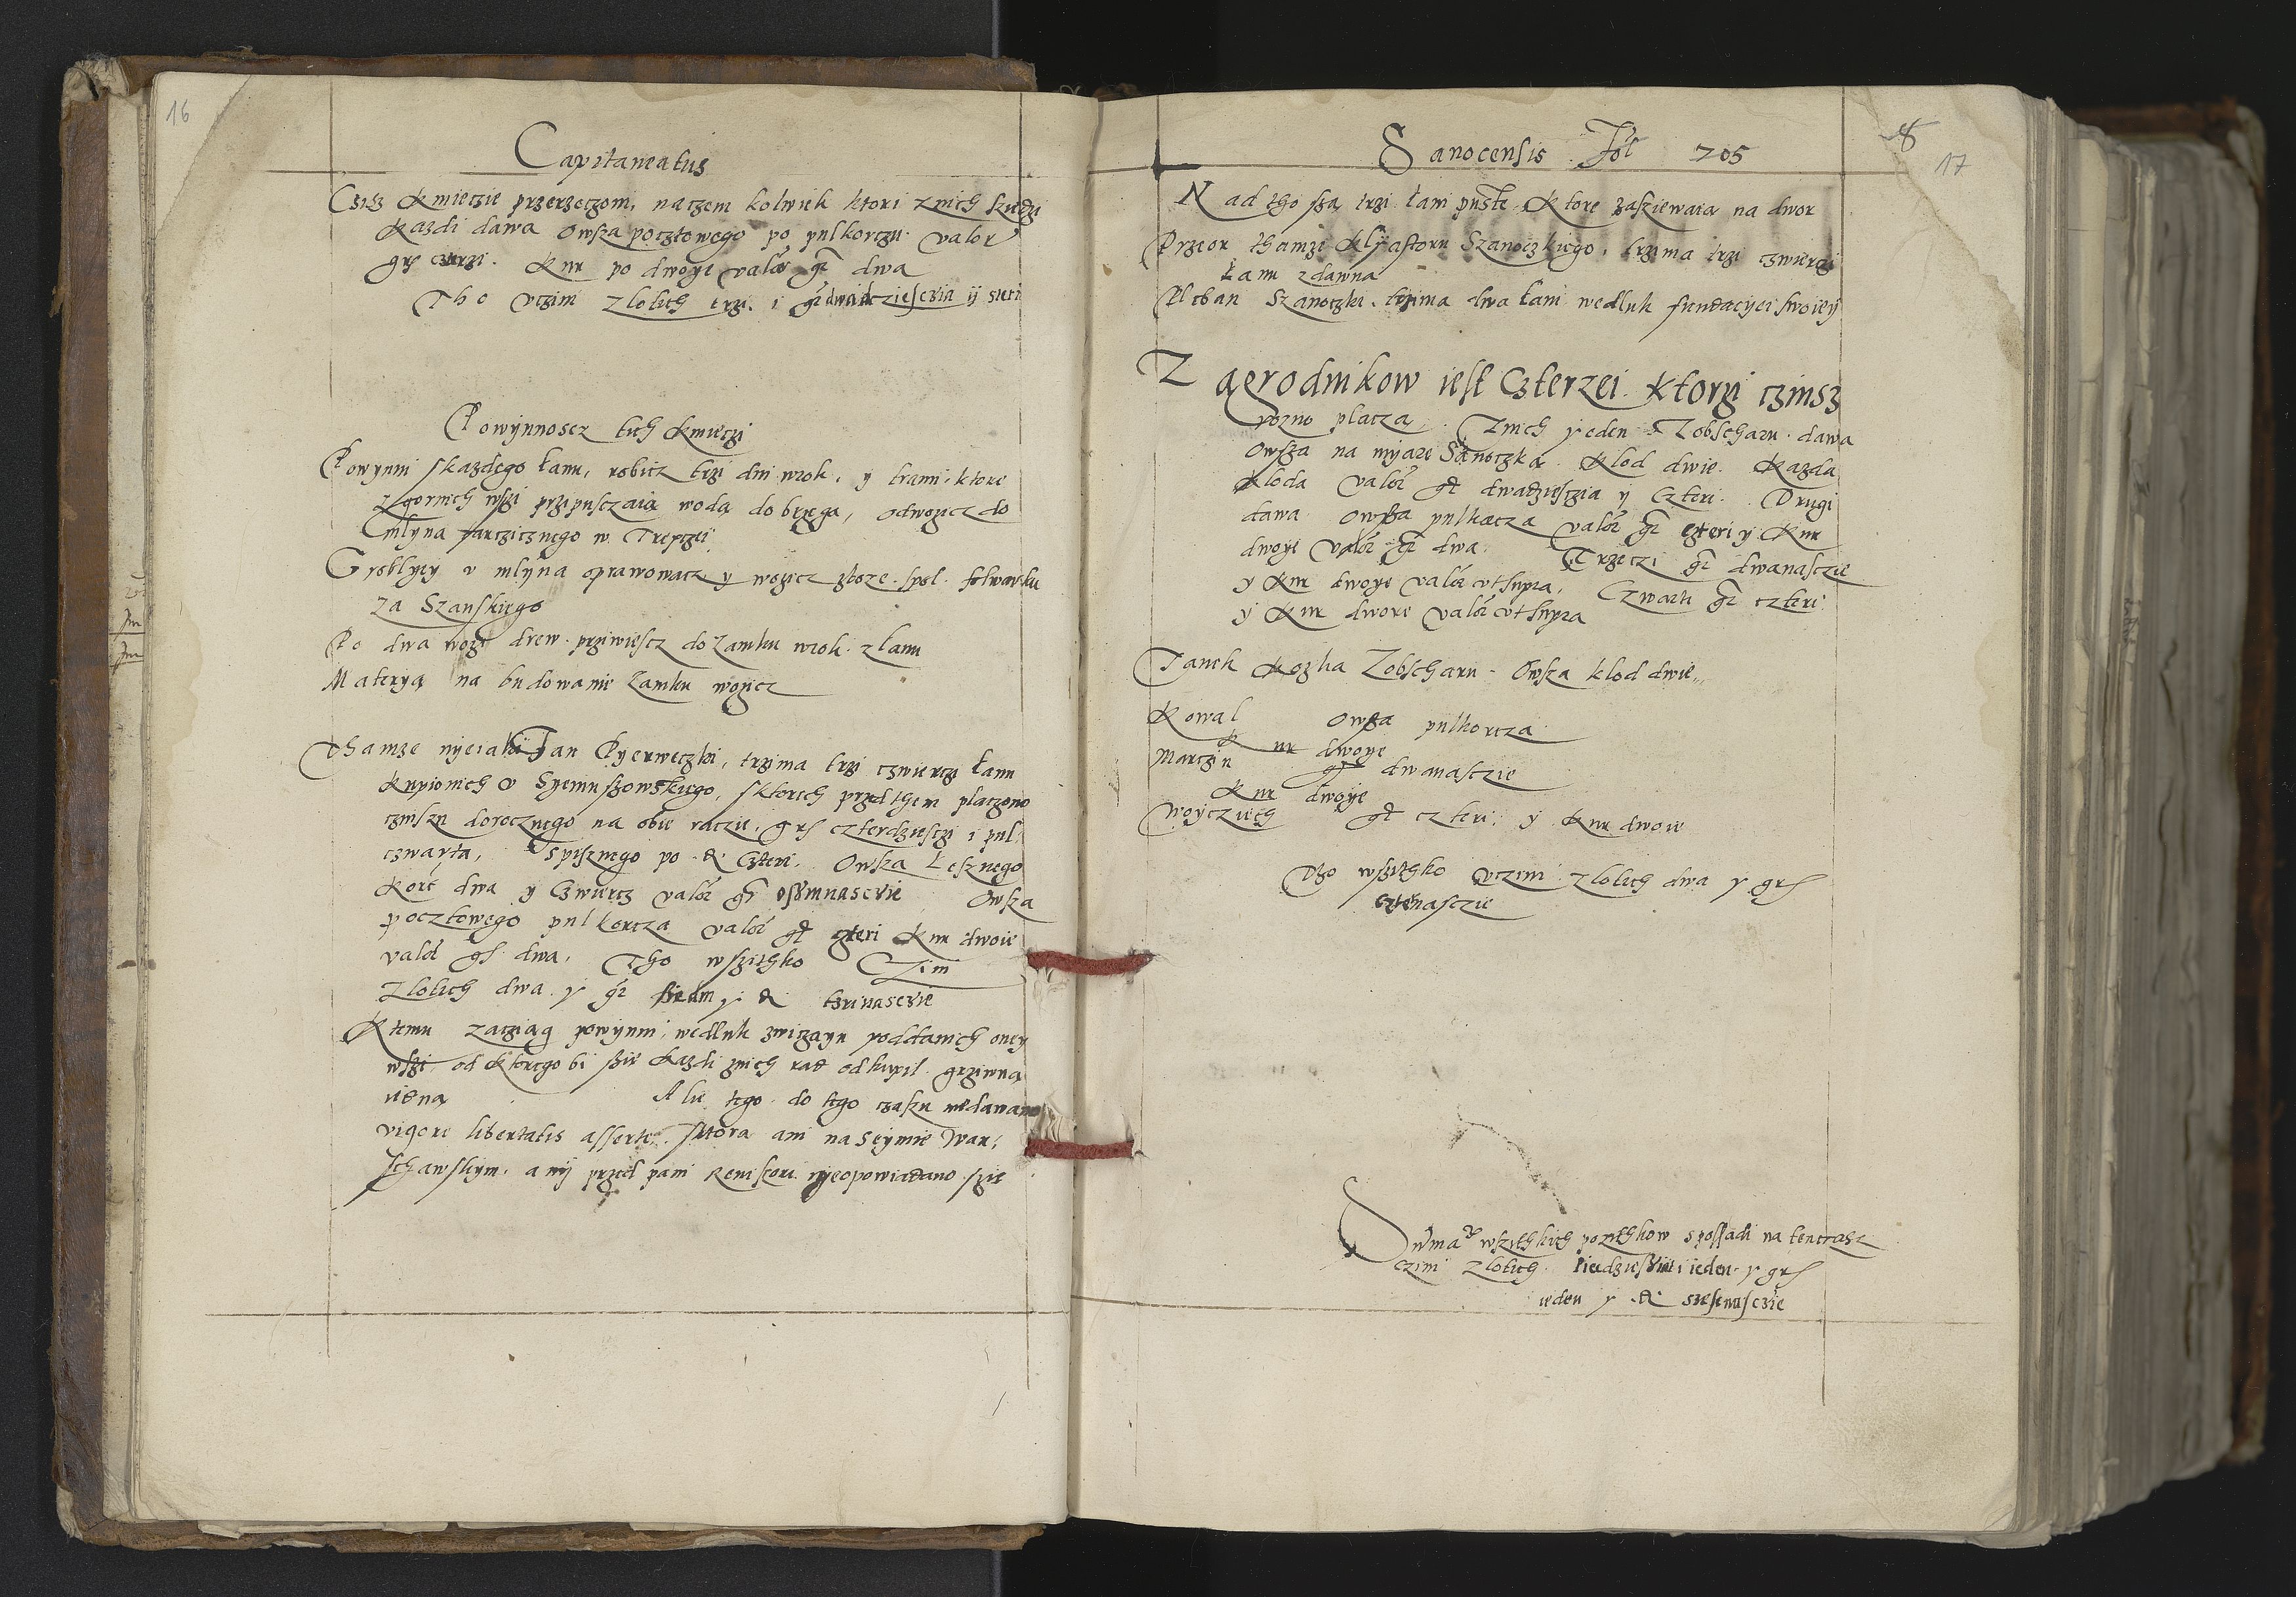 16
Capitaneatus
Cziz Kmieczie przerzeczoni, naczem kolwiek ktori znich siedzi
Kazdi dawa Owsza pocztowego po pulkorczu. Valor
grs czterzi. Kur po dwoye valor gr dwa
Tho vczini zlotich trzi. i gr dwadziesczia ij sterí
Powynnoscz tich Kmieczi
Powynni skazdego Łanu, robicz trzi dni wrok, y trami, ktore
zgornich wszi przipusczaią wodą do brzega, odwozicz do
mlyna tarczicznego w Trepczei
Groblyey v mlyna oprawowacz y wozicz zboze spol folwarku
za Szanskiego
Po dwa wozi drew przwiescz do Zamku wrok z lanu
Materyą na budowanie Zamku wozicz
Thamze nyeiaki Jan Pyerweczki, trzima trzi czwierczi Łanu
Kupionich v Syemuszowskiego, sktorich przed them placzono
czinszu dorocznego na obie raczie, grs czterdziesczi i pul
czwarta, Spisznego po d Czteri. Owsza Łesznego
Korc dwa y Czwiercz valor gr osszmnasczie Owsza
pocztowego pulkorcza valor gr czteri Kur dwoie
valor gr dwa. Tho wszithko Czini
Zlotich dwa y gr siedm y d trzinasczie
Ktemu zacziąg powynni, wedluk zwiczayu poddanich oney
wszi, od ktorego bi szie Kazdi znich rad odkupil grziwną
iedną Ale tego do tego czasu niedawano
vigore libertatis asserte, sktorą ani na Seymie War,
schawskym, anij przed pani Rewisori nyeopowiadano szie
Sanocensis Fol 205
8
17
Nad tho szą trzi Łani puste, Ktore zasziewaią na dwor
Przeor thamze Klyastoru Szanoczkiego, trzima trzi czwierczi
Łanu zdawna
Pleban Szanoczki, trzima dwa Łani wedluk fundacyei swoieij
Zagrodnikow iest Czterzei. Ktorzi czinsz
rozno placzą. Znich yeden Zobscharu dawa
Owsza na myarę Sanoczką Klod dwie. Kazda
Kloda Valor gr dwadziesczia y Czteri. Drugi
dawa Owsza pulkorcza valor gr czteri y Kur
dwoye valor gr dwa. Trzeczi gr dwanasczie
y Kur dwoye valor vt supra, Czwarti gr czteri
y Kur dwoie valor vt supra
Janek Kozka Zobscharu. Owsza klod dwie
Kowal Owsza pulkorcza
Kur dwoye
Marczin gr dwanasczie
Kur dwoye
Woycziech gr czteri y Kur dwoie
Tho wszithko vczini zlotich dwa y grs
czternasczie
Summa wszithkich pozithkow spossadi na tenczas
czini Zlotich Piedzieszianti ieden y grs
ieden y d szesnasczie